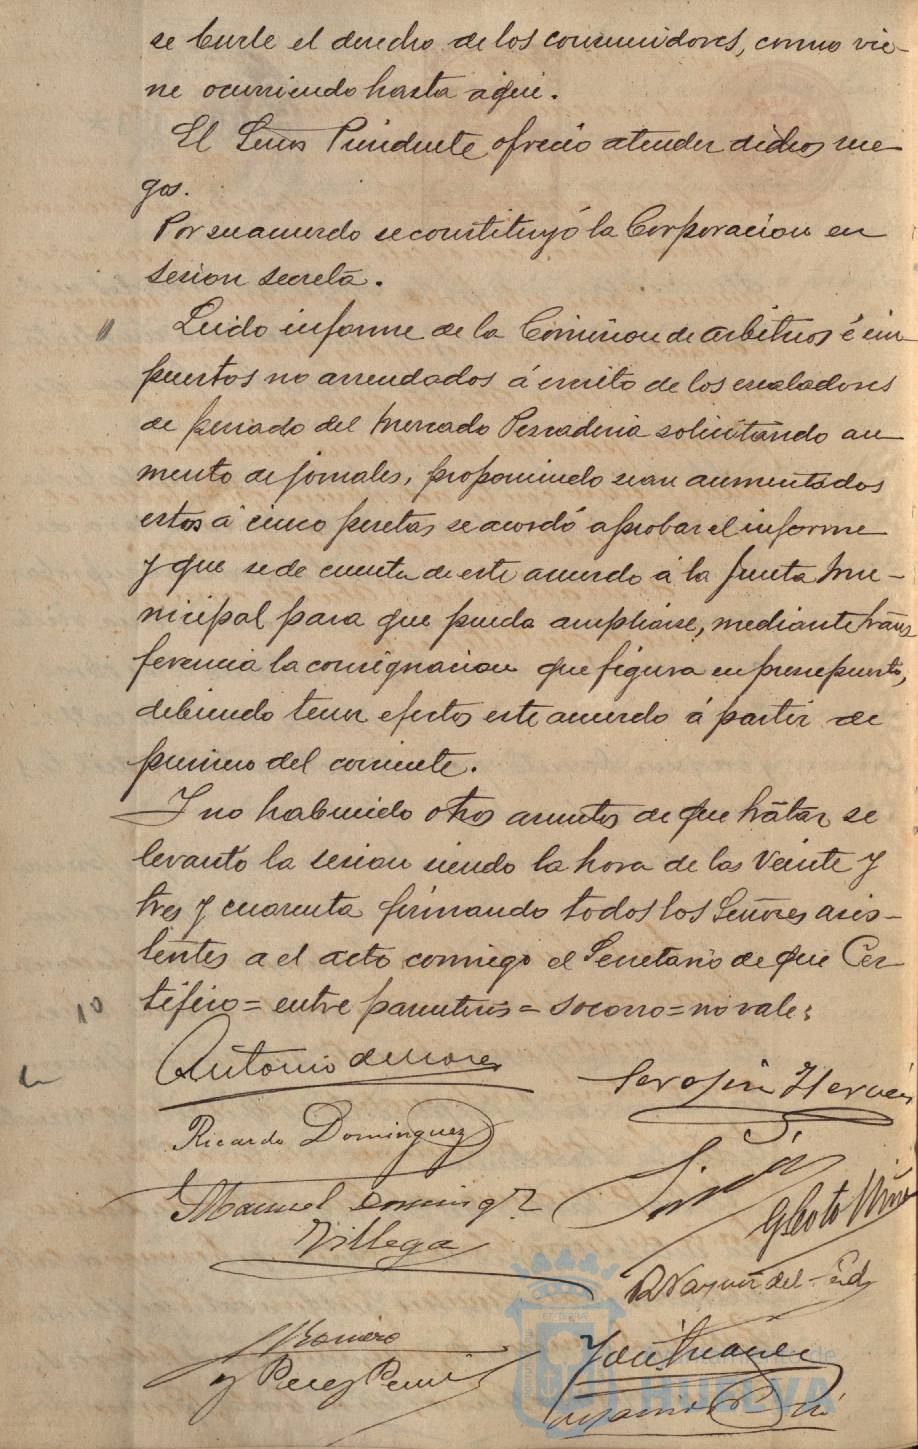 se burle el derecho de los consumidores, como vie-
ne ocurriendo hasta aqui.
El Señor Presidente ofreció atender dichos rue
gos.
Por su acuerdo se constituyó la Corporacion en
sesion secreta.
Leido informe de la Comision de arbitrios é im
puestos no arrendados á escrito de los
de pescado del Mercado Pescaderia solicitando au
mento de jornales, proponiendo sean aumentados
estos á cinco pesetas se acordó aprobar el informe
y que se de cuenta de este acuerdo á la Junta Mu-
nicipal para que pueda ampliarse, mediante trans
ferencia la consignacion que figura en presupuesto,
debiendo tener efectos este acuerdo á partir de
primero del corriente.
Y no habiendo otros asuntos de que tratar se
levantó la sesion siendo la hora de las veinte y
tres y cuarenta firmando todos los Señores asis-
tentes a el acto conmigo el Secretario de que Cer
tifico = entre parentesis = socorro = no vale:
10
Antonio de Mora
Serafin
Ricardo Dominguez
Manuel Doming.z
Villega
del
Romero
y Perez
HUELVA